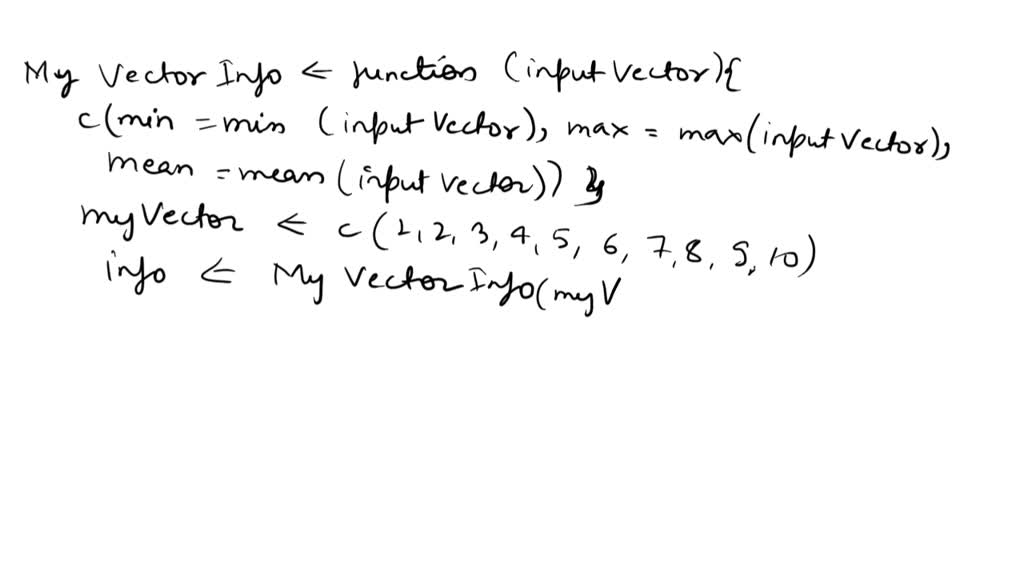 My Vector Info ← function (input Vector){
c(min = min (input Vector), max = max(input Vector),
mean = mean (input vector)) }
my Vector ← c(1, 2, 3, 4, 5, 6, 7, 8, 9, 10)
info ← My Vector Info(my V